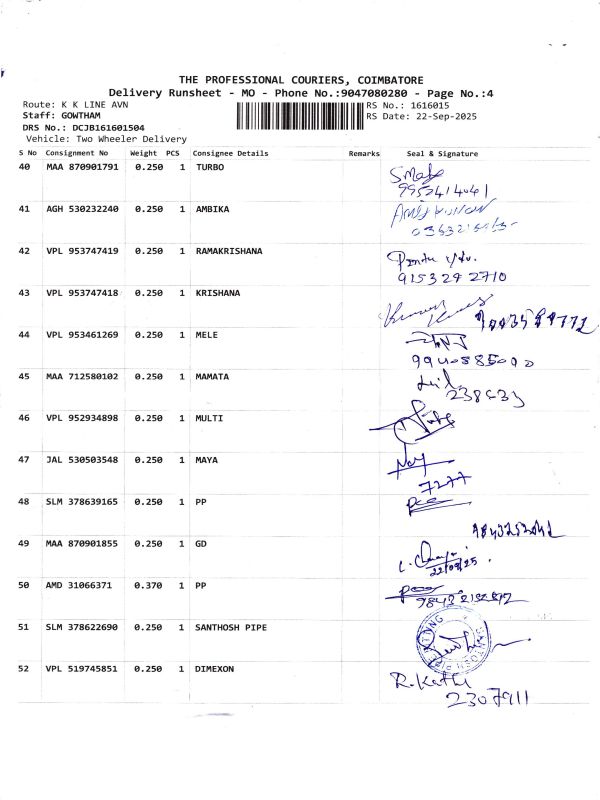 THE PROFESSIONAL COURIERS, COIMBATORE
Delivery Runsheet - MO - Phone No.:9047080280 - Page No.:4
Route: K K LINE AVN RS No.: 1616015
Staff: GOWTHAM RS Date: 22-Sep-2025
DRS No.: DCJB161601504
Vehicle: Two Wheeler Delivery
S No Consignment No Weight PCS Consignee Details Remarks Seal & Signature
40 MAA 870901791 0.250 1 TURBO
9952414041
41 AGH 530232240 0.250 1 AMBIKA
42 VPL 953747419 0.250 1 RAMAKRISHANA
9153292710
43 VPL 953747418 0.250 1 KRISHANA
44 VPL 953461269 0.250 1 MELE
45 MAA 712580102 0.250 1 MAMATA
46 VPL 952934898 0.250 1 MULTI
47 JAL 530503548 0.250 1 MAYA
7277
48 SLM 378639165 0.250 1 PP
49 MAA 870901855 0.250 1 GD
22/09/25
50 AMD 31066371 0.370 1 PP
51 SLM 378622690 0.250 1 SANTHOSH PIPE
52 VPL 519745851 0.250 1 DIMEXON
R. Kathi
2307911